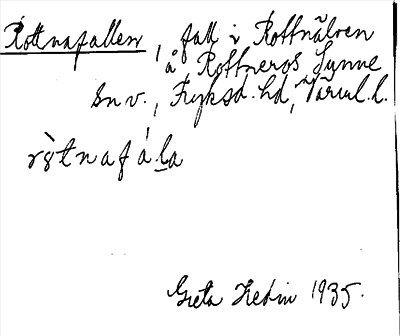 Rottnafallen, fall i Rottnälven
å Rottneros Sunne
sn v., Fryksd. hd, Värml. l.
ròtnafálа
Greta Hedin 1935.